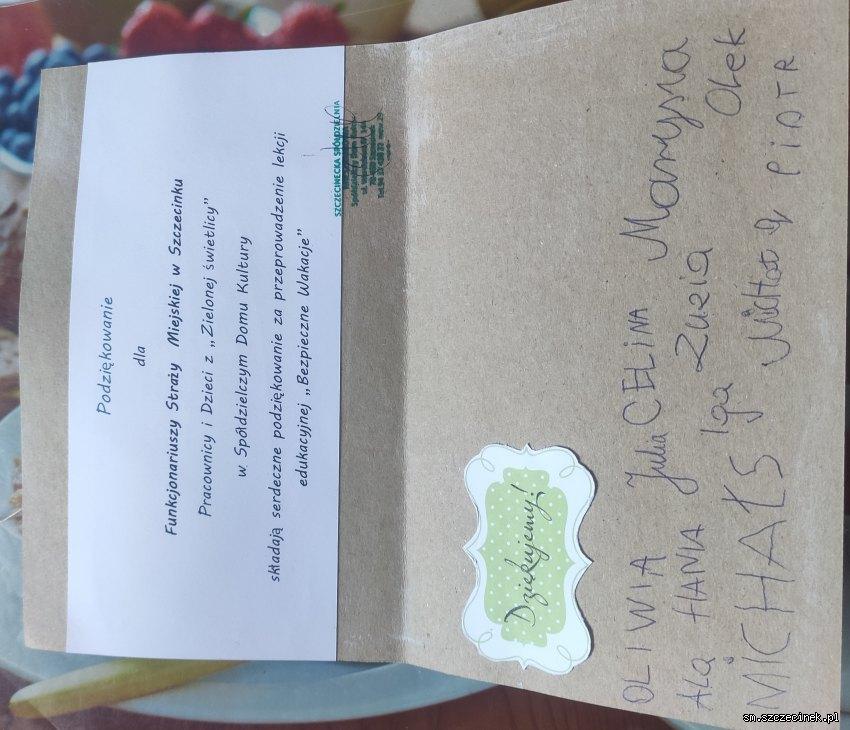 Podziękowanie
dla
Funkcjonariuszy Straży Miejskiej w Szczecinku
Pracownicy i Dzieci z „Zielonej świetlicy”
w Spółdzielczym Domu Kultury
składają serdeczne podziękowanie za przeprowadzenie lekcji
edukacyjnej „Bezpieczne Wakacje”
SZCZECINECKA SPÓŁDZIELNIA
Dziękujemy!
OLIWIA Julia CELINA Marysia
Ala HANIA Iga Zuzia Olek
MICHAŁ S PIOTR
sm.szczecinek.pl